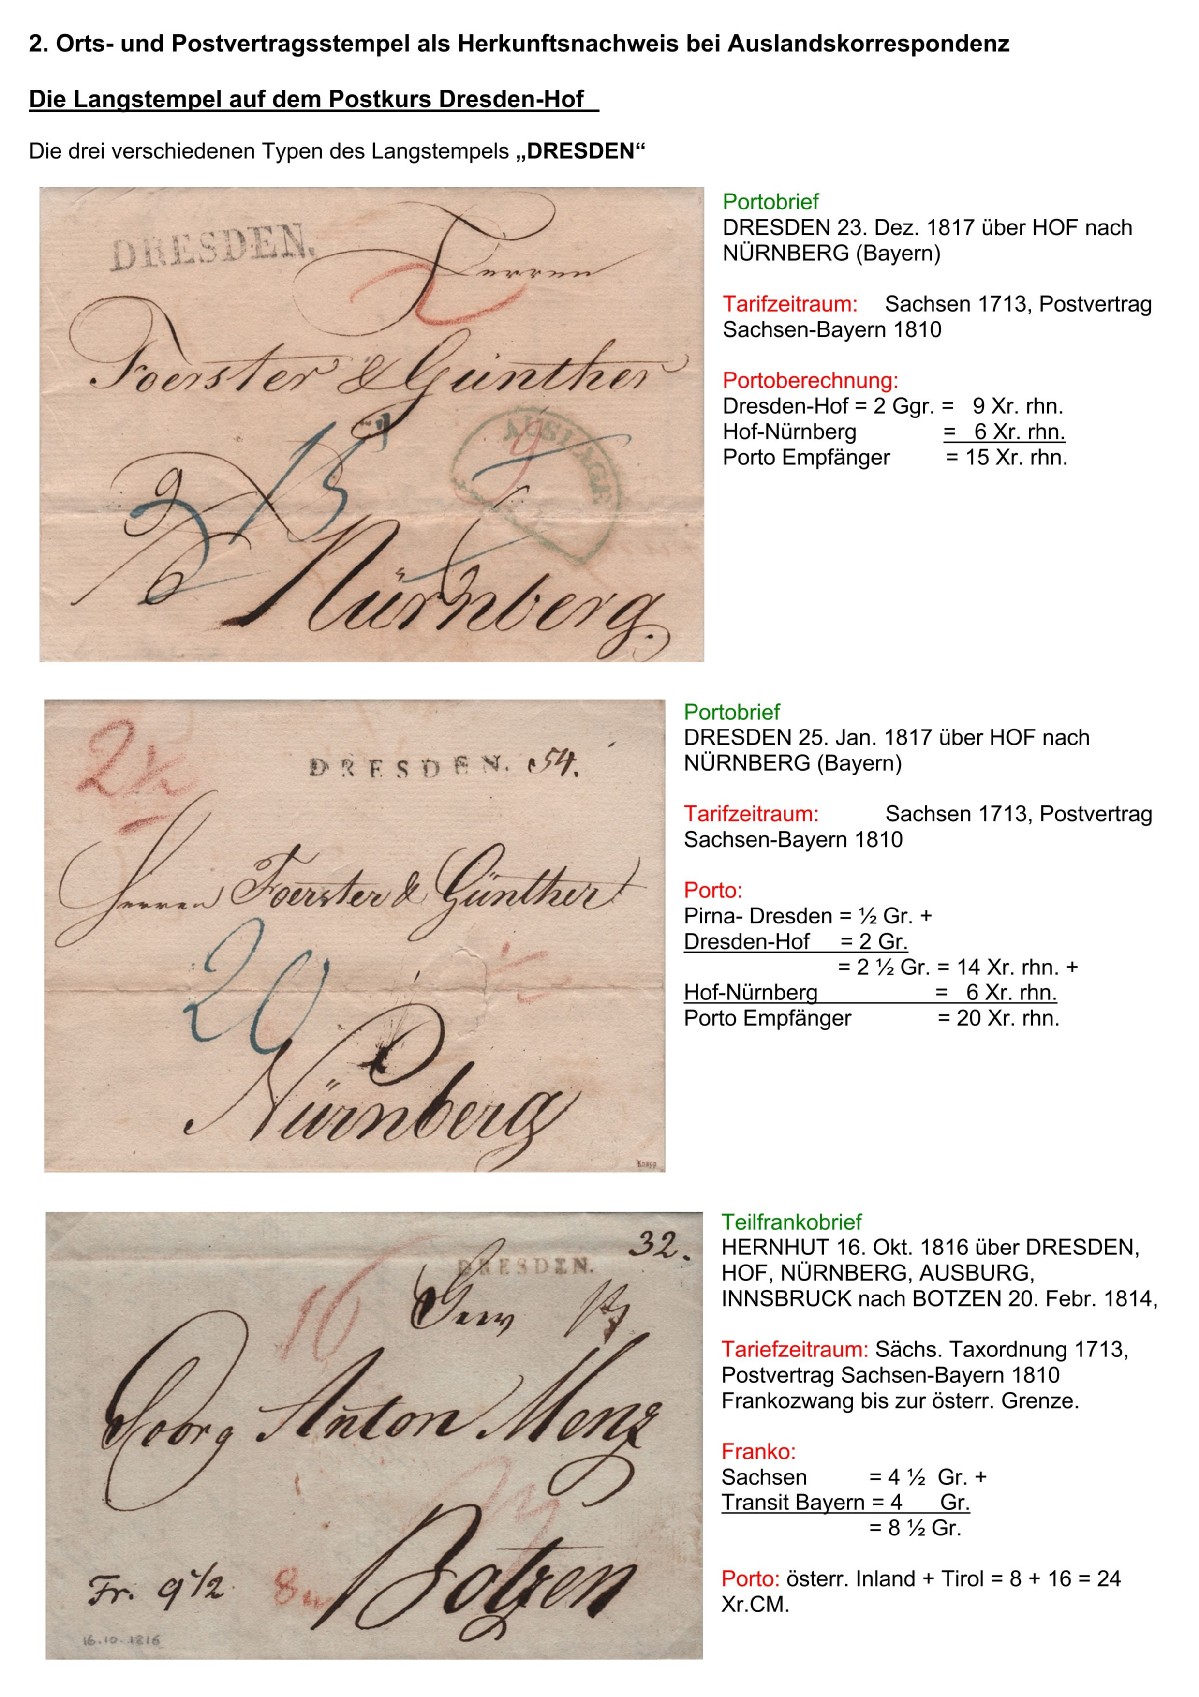 2. Orts- und Postvertragsstempel als Herkunftsnachweis bei Auslandskorrespondenz
Die Langstempel auf dem Postkurs Dresden-Hof
Die drei verschiedenen Typen des Langstempels „DRESDEN“
DRESDEN.
Herren
Foerster & Günther
15
AUSLAGE
Nürnberg.
Portobrief
DRESDEN 23. Dez. 1817 über HOF nach
NÜRNBERG (Bayern)
Tarifzeitraum: Sachsen 1713, Postvertrag
Sachsen-Bayern 1810
Portoberechnung:
Dresden-Hof = 2 Ggr. = 9 Xr. rhn.
Hof-Nürnberg = 6 Xr. rhn.
Porto Empfänger = 15 Xr. rhn.
2½
DRESDEN. 54.
Herren Foerster & Günther
20
Nürnberg
Knapp
Portobrief
DRESDEN 25. Jan. 1817 über HOF nach
NÜRNBERG (Bayern)
Tarifzeitraum: Sachsen 1713, Postvertrag
Sachsen-Bayern 1810
Porto:
Pirna- Dresden = ½ Gr. +
Dresden-Hof = 2 Gr.
= 2 ½ Gr. = 14 Xr. rhn. +
Hof-Nürnberg = 6 Xr. rhn.
Porto Empfänger = 20 Xr. rhn.
32.
DRESDEN.
16
Georg Anton Menz
Botzen
Fr. 9 1/2
8
16.10.1816
Teilfrankobrief
HERNHUT 16. Okt. 1816 über DRESDEN,
HOF, NÜRNBERG, AUSBURG,
INNSBRUCK nach BOTZEN 20. Febr. 1814,
Tariefzeitraum: Sächs. Taxordnung 1713,
Postvertrag Sachsen-Bayern 1810
Frankozwang bis zur österr. Grenze.
Franko:
Sachsen = 4 ½ Gr. +
Transit Bayern = 4 Gr.
= 8 ½ Gr.
Porto: österr. Inland + Tirol = 8 + 16 = 24
Xr.CM.